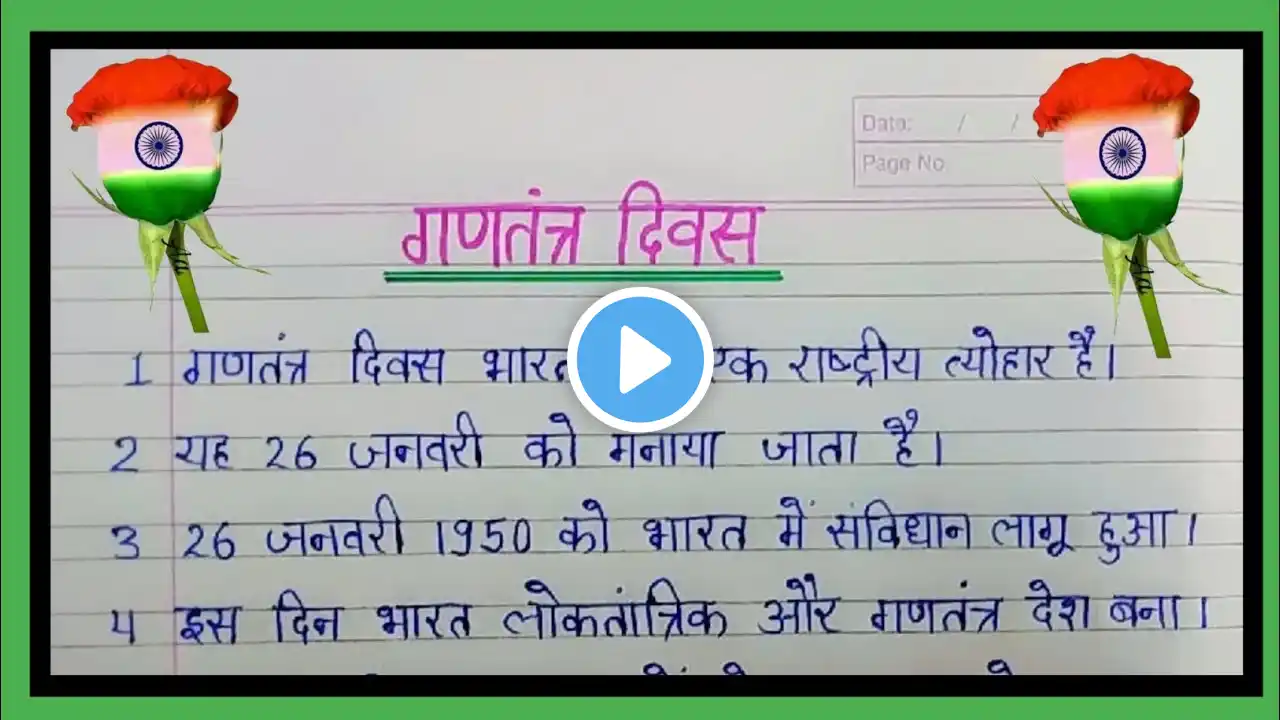 Date: / /
Page No
गणतंत्र दिवस
1 गणतंत्र दिवस भारत एक राष्ट्रीय त्योहार है।
2 यह 26 जनवरी को मनाया जाता है।
3 26 जनवरी 1950 को भारत में संविधान लागू हुआ।
4 इस दिन भारत लोकतांत्रिक और गणतंत्र देश बना।